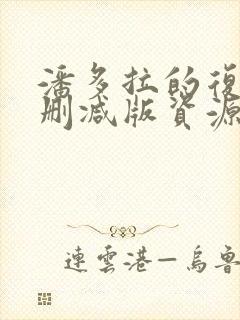 潘多拉的復
刪減版資源
連雲港—烏魯